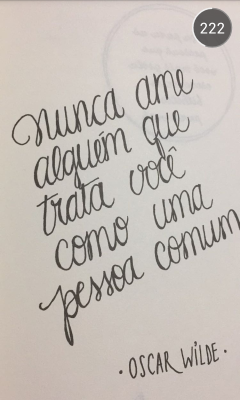 222
nunca ame
alguém que
trata você
como uma
pessoa comum
· OSCAR WILDE ·